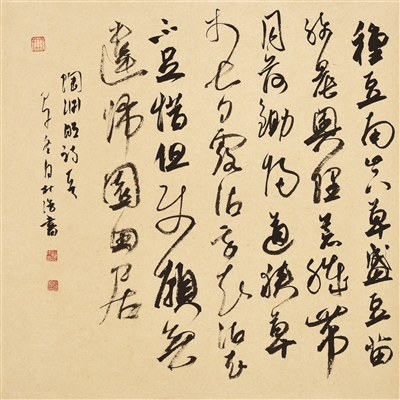 種豆南山下草盛豆苗
稀晨興理荒穢帶
月荷鋤歸道狹草
木長夕露沾我衣沾
不足惜但使願無
違歸園田居
陶淵明詩
冬月 書